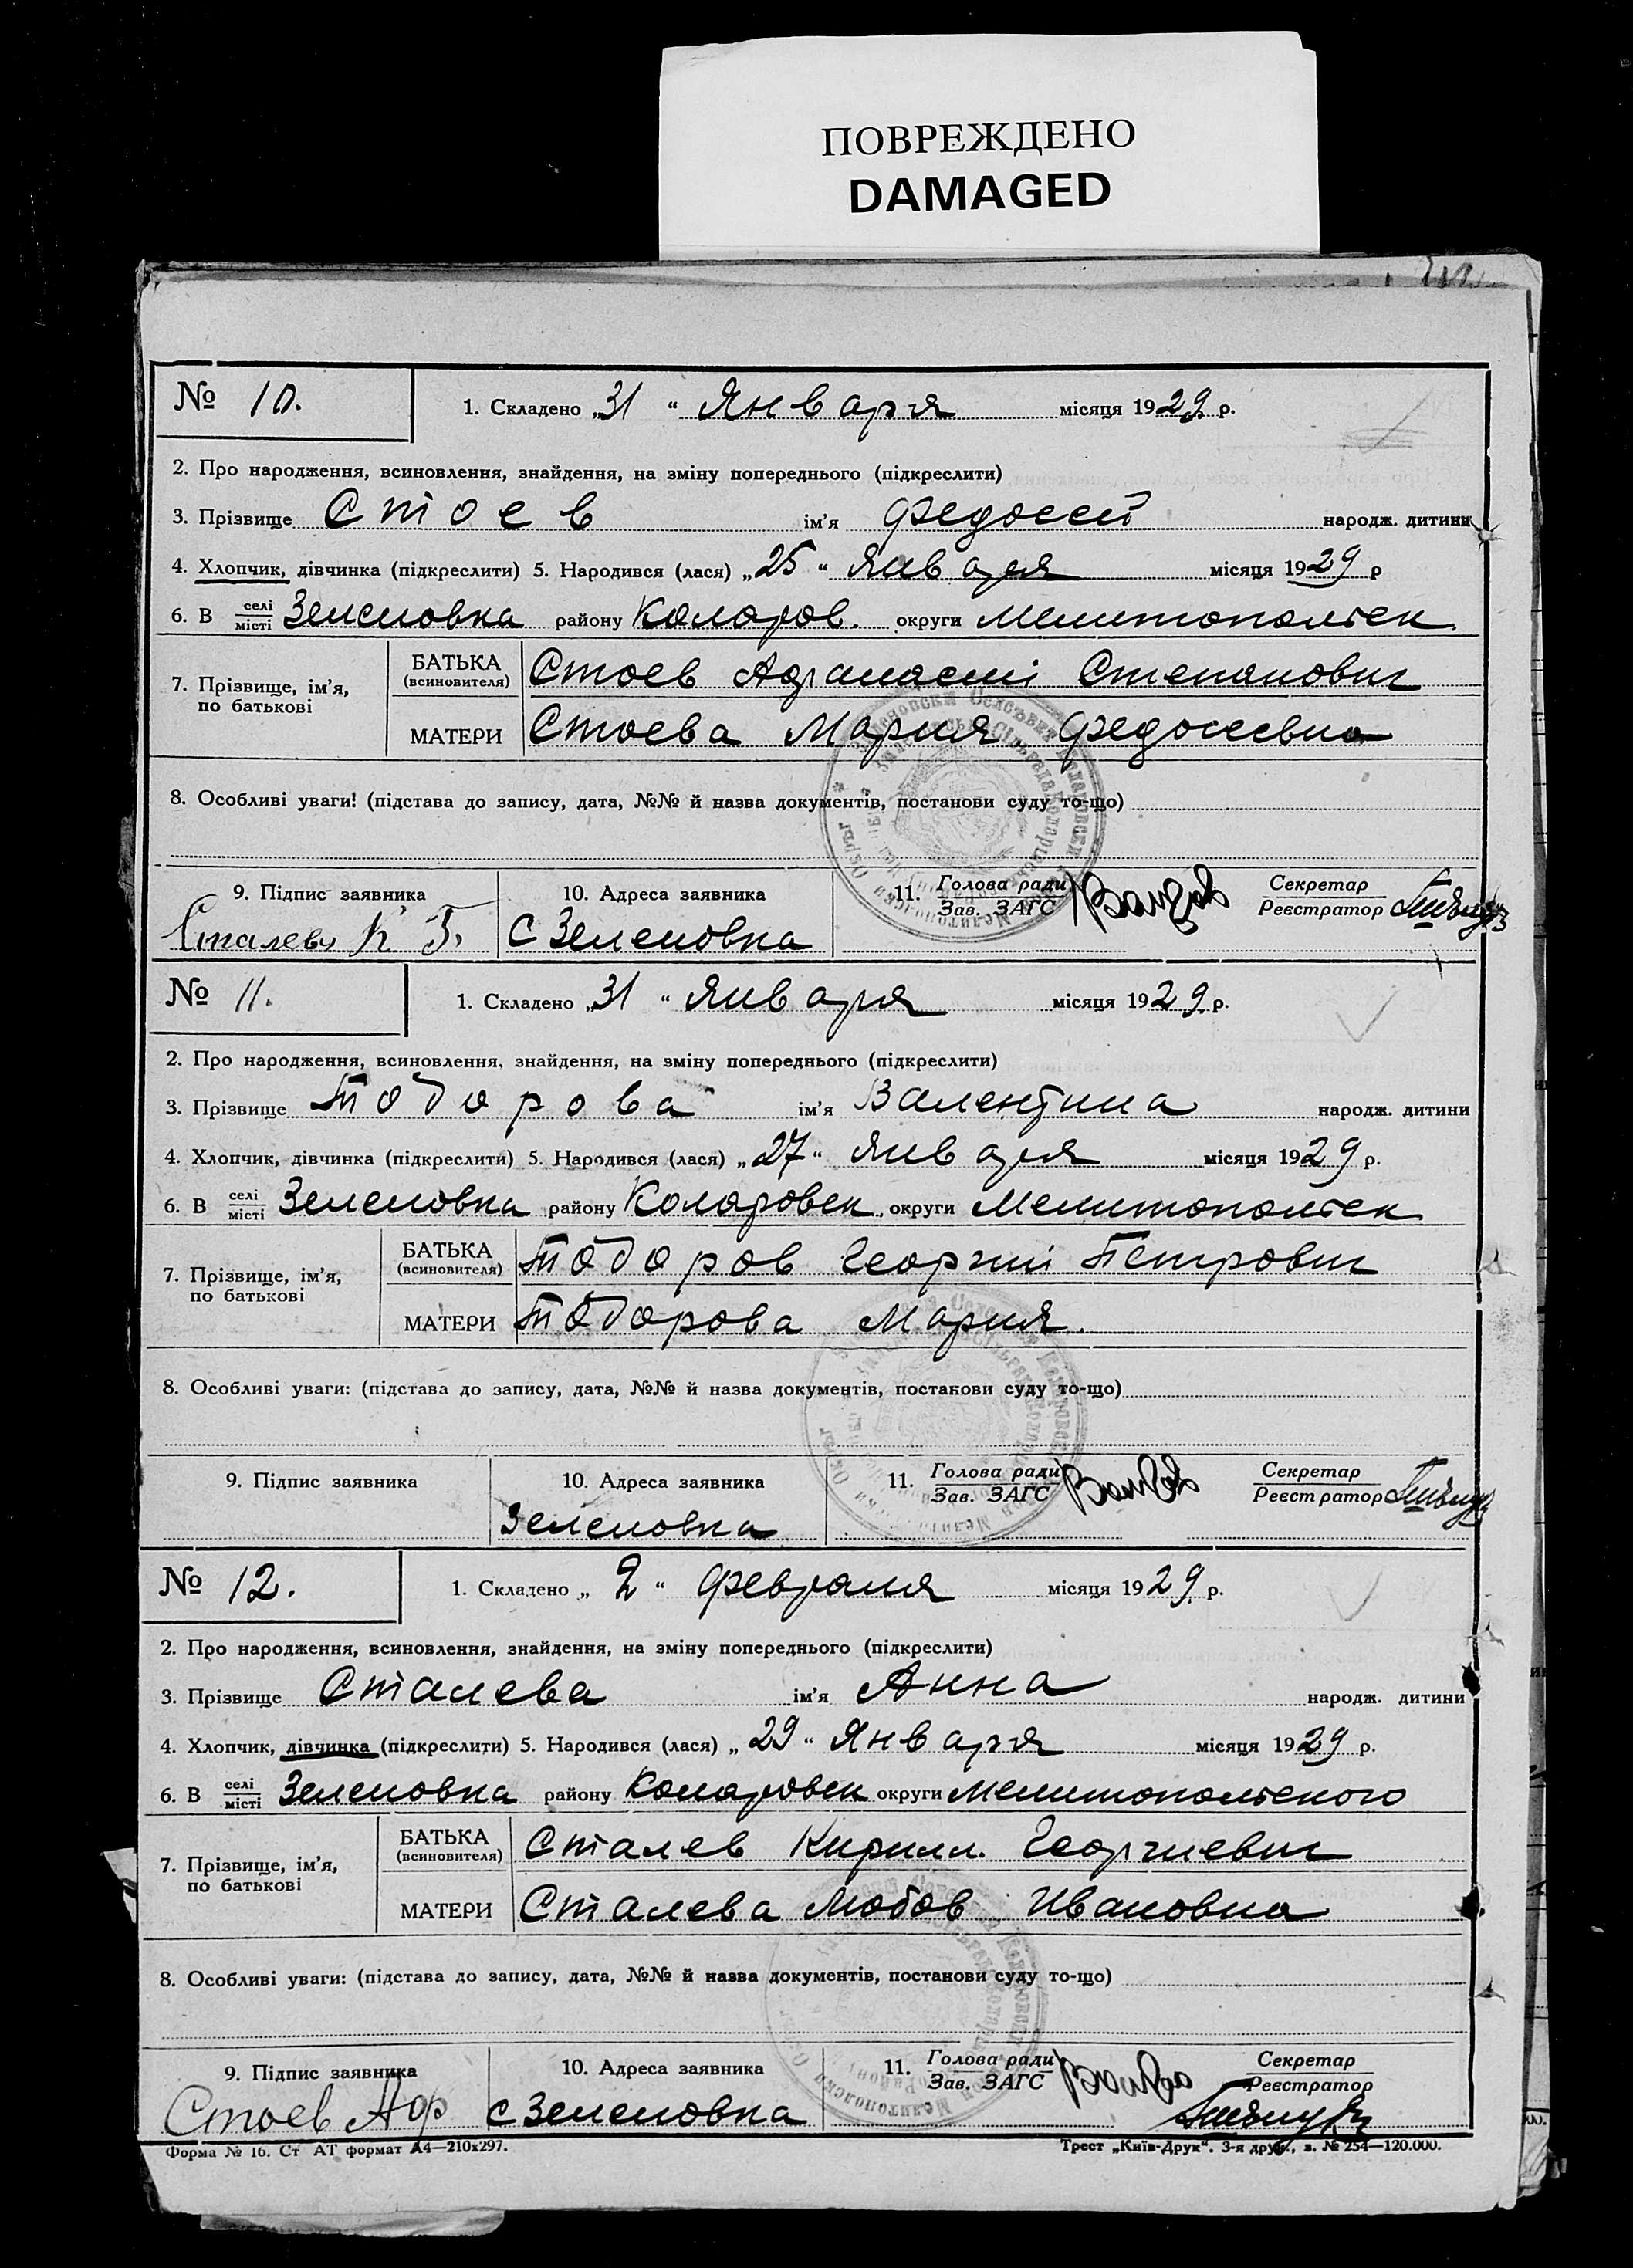 ПОВРЕЖДЕНО
DAMAGED
№ 10.
1. Складено „31“ Января місяця 1929 р.
2. Про народження, всиновлення, знайдення, на зміну попереднього (підкреслити)
3. Прізвище Стоев ім'я Федосей народж. дитини
4. Хлопчик, дівчинка (підкреслити) 5. Народився (лася) „25“ Января місяця 1929 р
6. В селі місті Зеленовка району Коларов. округи Мелитопольск.
7. Прізвище, ім'я, по батькові
БАТЬКА (всиновителя) Стоев Афанасий Степанович
МАТЕРИ Стоева Мария Федосеевна
8. Особливі уваги! (підстава до запису, дата, №№ й назва документів, постанови суду то-що)
9. Підпис заявника 10. Адреса заявника 11. Голова ради Зав. ЗАГС Секретар Реєстратор
Сталев К Г. С Зеленовка
№ 11.
1. Складено „31“ Января місяця 1929 р.
2. Про народження, всиновлення, знайдення, на зміну попереднього (підкреслити)
3. Прізвище Тодорова ім'я Валентина народж. дитини
4. Хлопчик, дівчинка (підкреслити) 5. Народився (лася) „27“ Января місяця 1929 р.
6. В селі місті Зеленовка району Коларовск округи Мелитопольск
7. Прізвище, ім'я, по батькові
БАТЬКА (всиновителя) Тодоров Георгий Петрович
МАТЕРИ Тодорова Мария.
8. Особливі уваги: (підстава до запису, дата, №№ й назва документів, постанови суду то-що)
9. Підпис заявника 10. Адреса заявника 11. Голова ради Зав. ЗАГС Секретар Реєстратор
Зеленовка
№ 12.
1. Складено „2“ Февраля місяця 1929 р.
2. Про народження, всиновлення, знайдення, на зміну попереднього (підкреслити)
3. Прізвище Сталева ім'я Анна народж. дитини
4. Хлопчик, дівчинка (підкреслити) 5. Народився (лася) „29“ Января місяця 1929 р.
6. В селі місті Зеленовка району Коларовск округи Мелитопольского
7. Прізвище, ім'я, по батькові
БАТЬКА (всиновителя) Сталев Кирилл Георгиевич
МАТЕРИ Сталева Любов Ивановна
8. Особливі уваги: (підстава до запису, дата, №№ й назва документів, постанови суду то-що)
9. Підпис заявника 10. Адреса заявника 11. Голова ради Зав. ЗАГС Секретар Реєстратор
Стоев Аф с Зеленовка
Форма № 16. Ст АТ формат А4—210х297.
Трест „Київ-Друк“. 3-я друк., з. № 254—120.000.